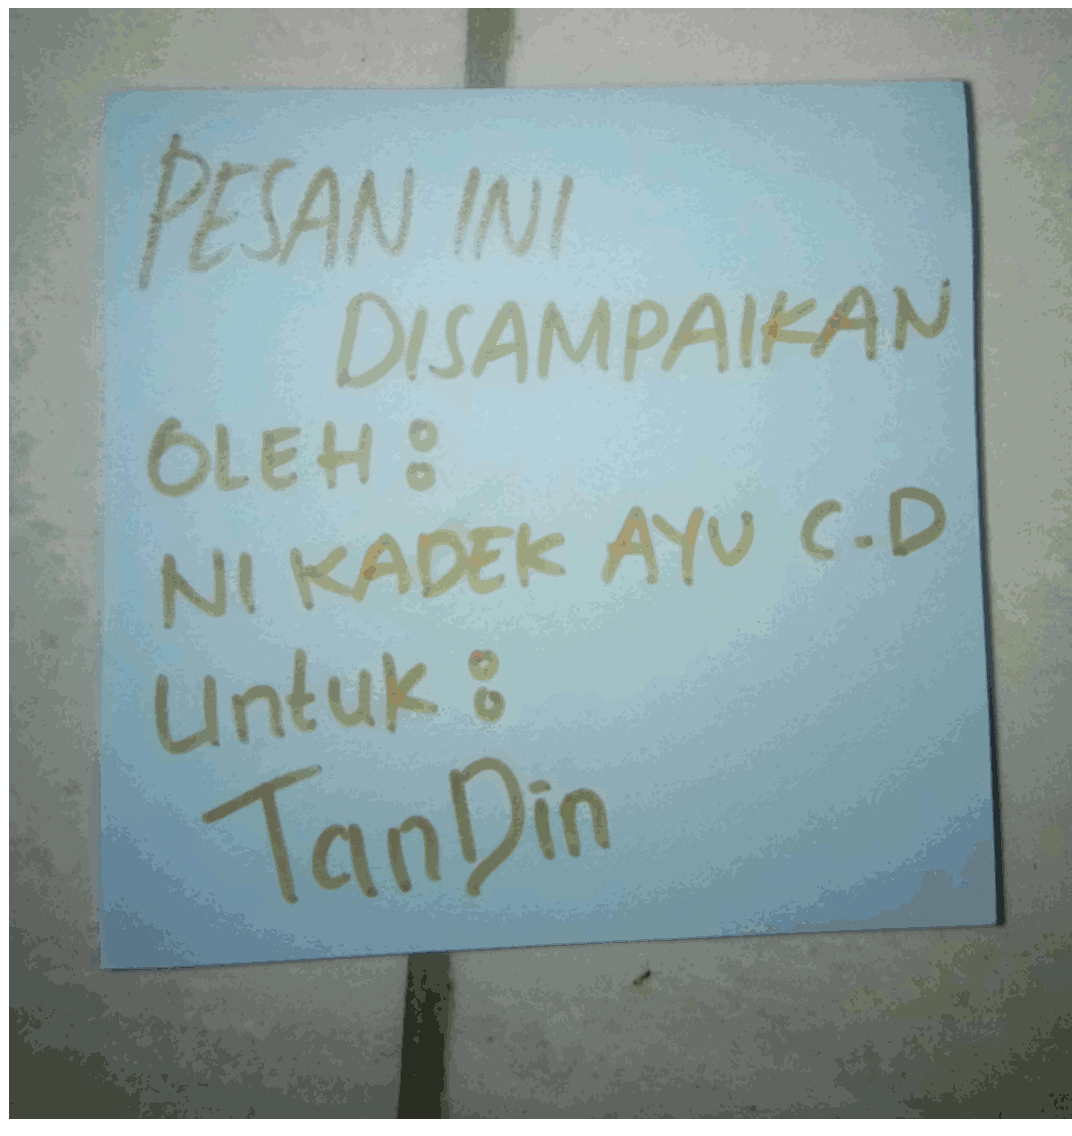 PESAN INI
DISAMPAIKAN
OLEH :
NI KADEK AYU C.D
Untuk :
TanDin